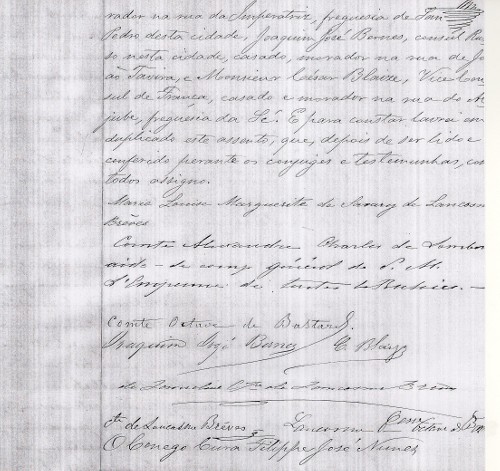 rador na rua da Imperatriz, freguesia de San
Pedro desta cidade, Joaquim José Bornes, consul Rus
so nesta cidade, casado, morador na rua de Jo
ão Tavira, e Monsieur César Blaize, Vice Con
sul de França, casado e morador na rua do A
jube, freguesia da Sé. E para constar lavrei em
duplicado este assento, que, depois de ser lido e
conferido perante os conjuges e testemunhas, com
todos assigno.
Marie Louise Marguerite de Savary de Lancosme
Brèves
Comte Alexandre Charles de Lambe
aide-de-camp général de S. M.
l'Empereur de toutes les Russies.
Comte Octave de Bastard.
Joaquim José Bornes C. Blaize
de Lancosme Brèves
Cte. de Lancosme Brèves Lancosme
O Conego Cura Filippe José Nunes